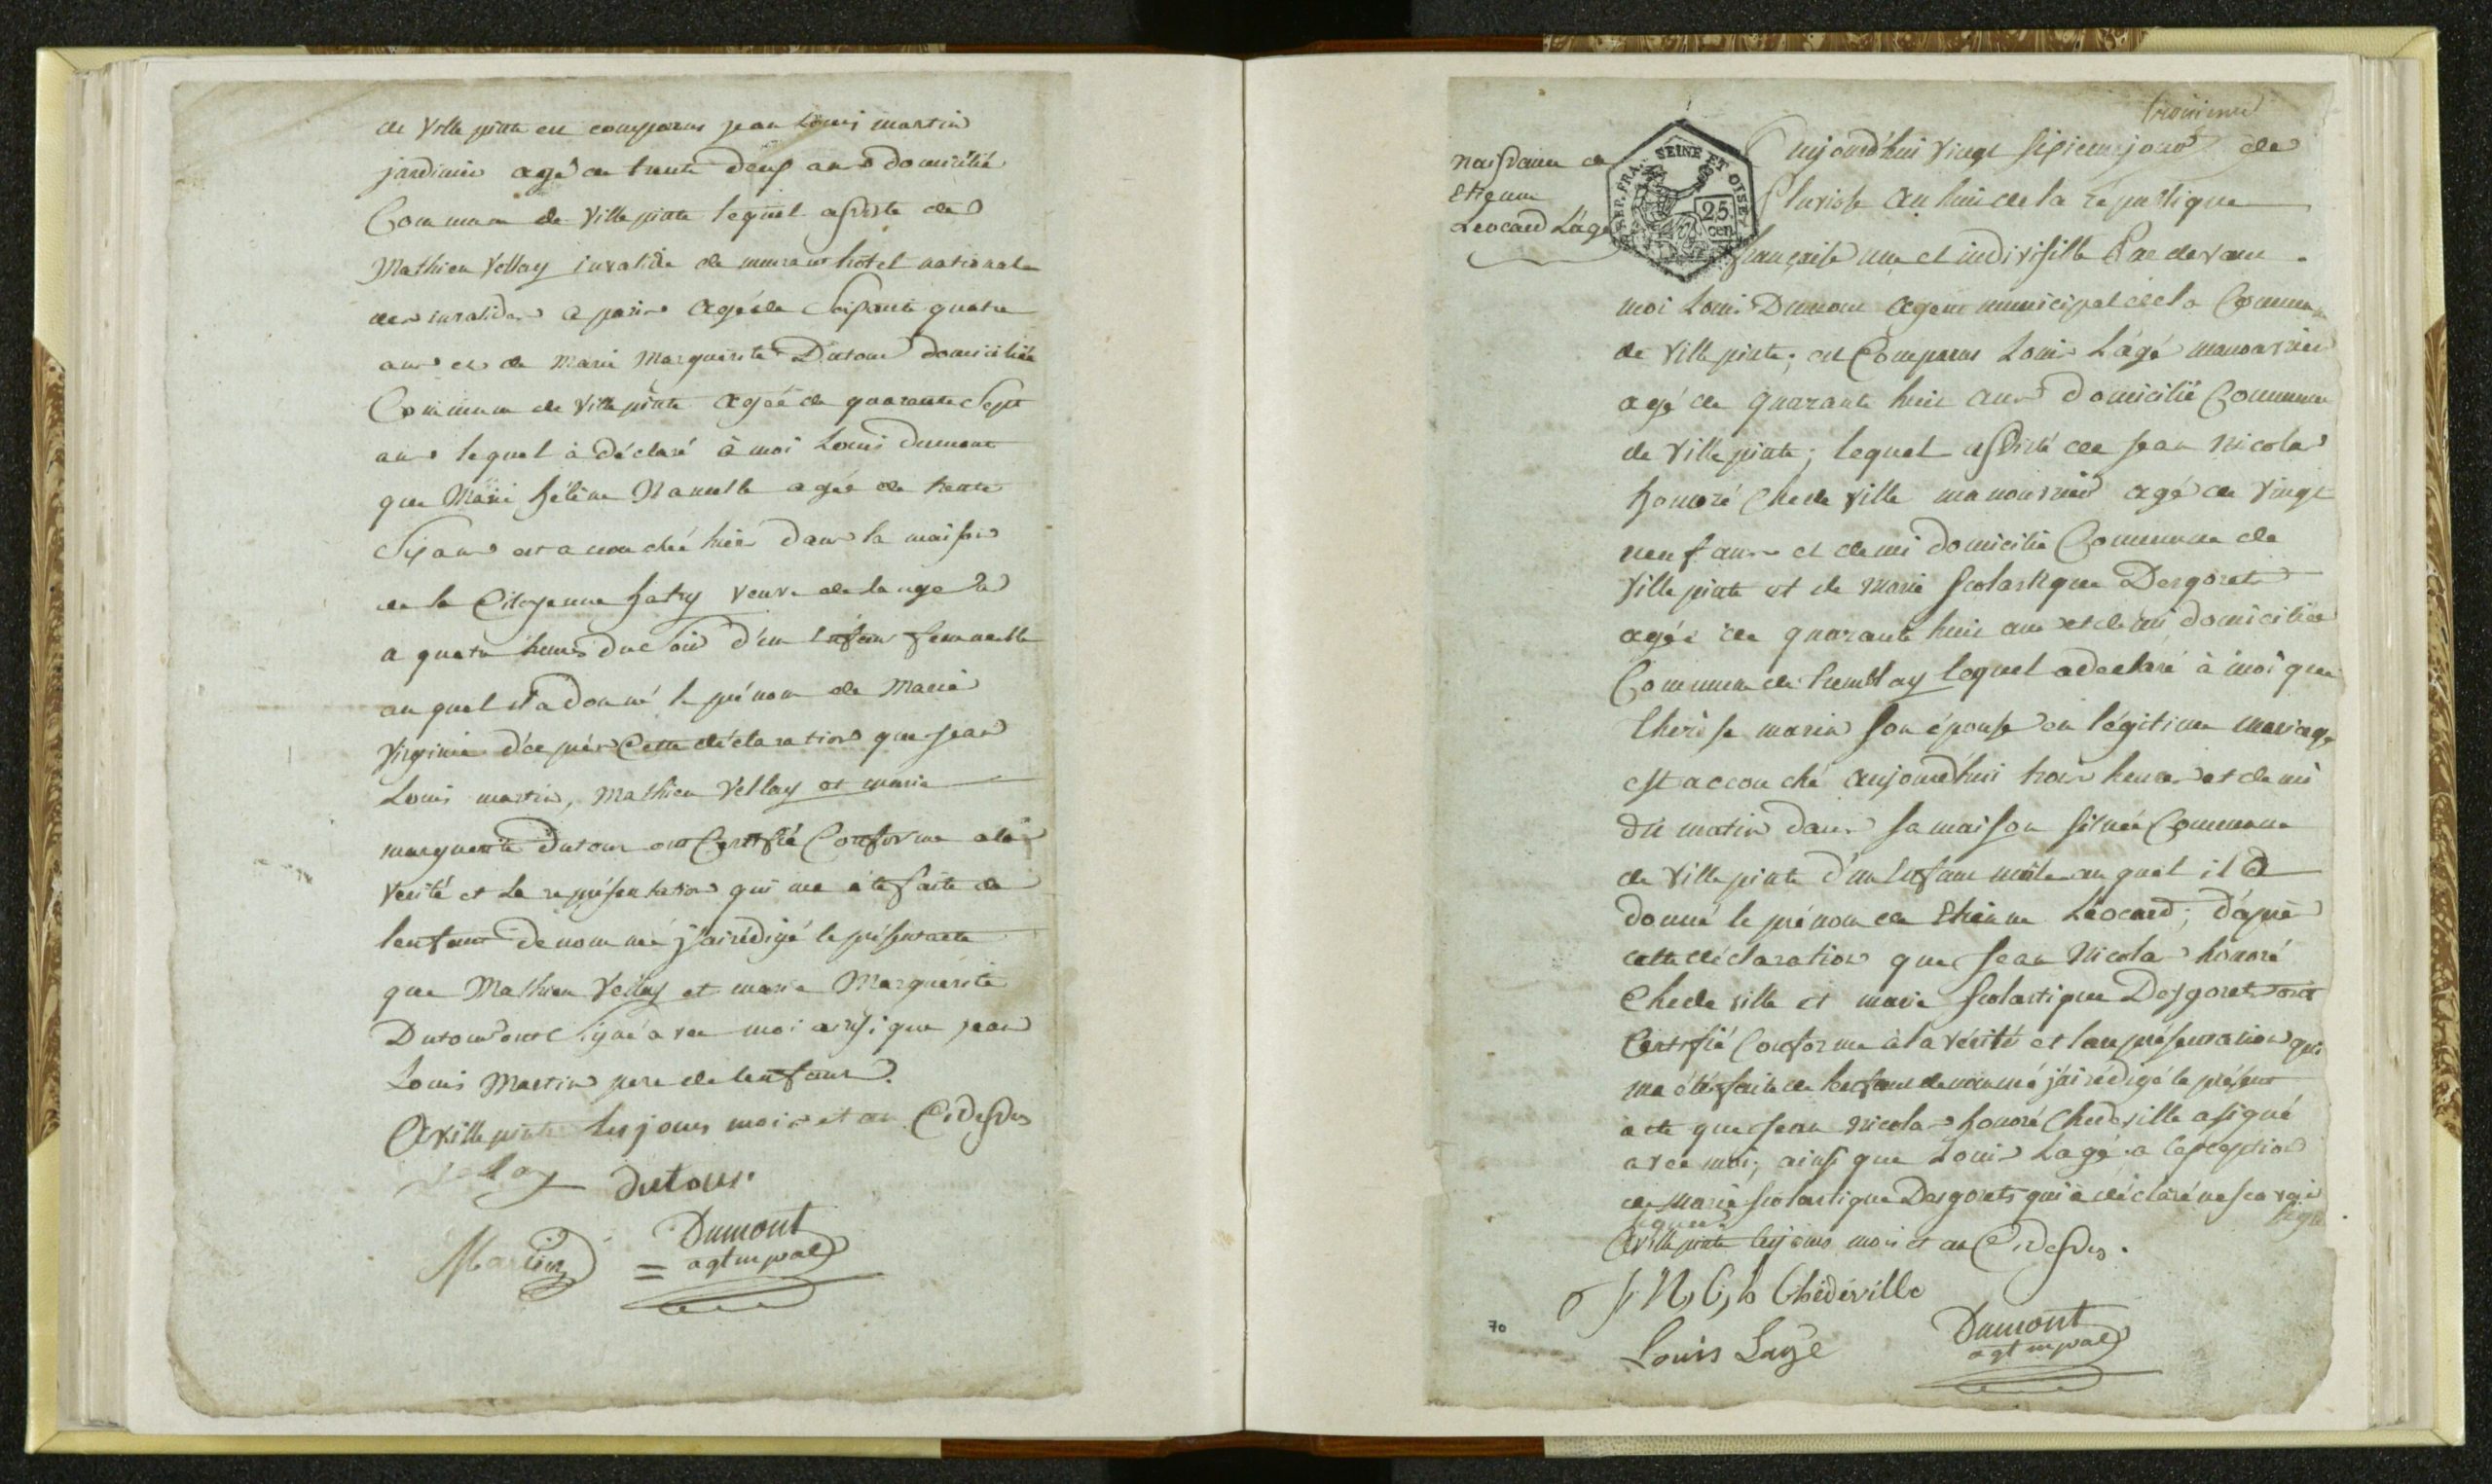 de Ville pinte est comparus jean Louis martin
jardinier agé de trente deux ans domicilié
Commune de Ville pinte lequel assisté de
Mathieu Vellay invalide de maison hotel nationale
des invalides a paris agé de Soixante quatre
ans et de Marie Marguerite Dutour domiciliée
Commune de Ville pinte agée de quarante Sept
ans lequel à déclaré à moi Louis dumont
que Marie hélène agée de trente
Six ans est acouchée hier dans la maison
de la Citoyenne hatry veuve
a quatre heures du Soir d'un Enfant femmelle
auquel il a donné le prénom de Marie
Virginie d'ap cette déclaration que jean
Louis martin, Mathieu Vellay et marie
marguerite Dutour ont Certifié Conforme a la
vérité et la représentation qui ma été faite de
lenfant denommé j'ai rédigé le présent acte
que Mathieu Vellay et marie Marguerite
Dutour ont Signé avec moi ainsi que jean
Louis Martin pere de lenfant.
A Ville pinte les jours mois et an Cidessus
Vellay dutour.
Martin = Dumont
agt mpal
troisieme
naissance de
Etienne
Léocard Lagé
REP. FRA. SEINE ET OISE
25 cen
Aujourd'hui vingt jour de
an huit de la république
française une et indivisible Par devant
moi Louis Dumont agent municipal de la Commune
de Ville pinte; est Comparus Louis Lagé manouvrier
agé de quarante huit ans domicilié Commune
de Ville pinte; lequel assisté de Jean Nicolas
honoré Chedeville manouvrier agé de vingt
neuf ans et demi domicilié Commune de
Ville pinte et de Marie Scolastique Desgorets
agée de quarante huit ans et demi domiciliée
Commune de tremblay lequel a declaré à moi que
therèse marin son épouse en légitime mariage
est accouché aujourd'hui trois heures et demi
du matin dans sa maison située Commune
de Ville pinte d'un Enfant mâle auquel il a
donné le prénom de Etienne Léocard; d'après
cette déclaration que Jean Nicolas honoré
Chedeville et marie Scolastique Desgorets ont
Certifié Conforme à la vérité et la représentation qui
ma été faite de lenfant denommé j'ai rédigé le présent
acte que Jean Nicolas honoré Chedeville a signé
avec moi; ainsi que Louis Lagé a lexception
de Marie Scolastique Desgorets qui a déclaré ne scavoir
signer
A Ville pinte les jours mois et an Cidessus.
Chédéville
70
Louis Lagé Dumont
agt mpal